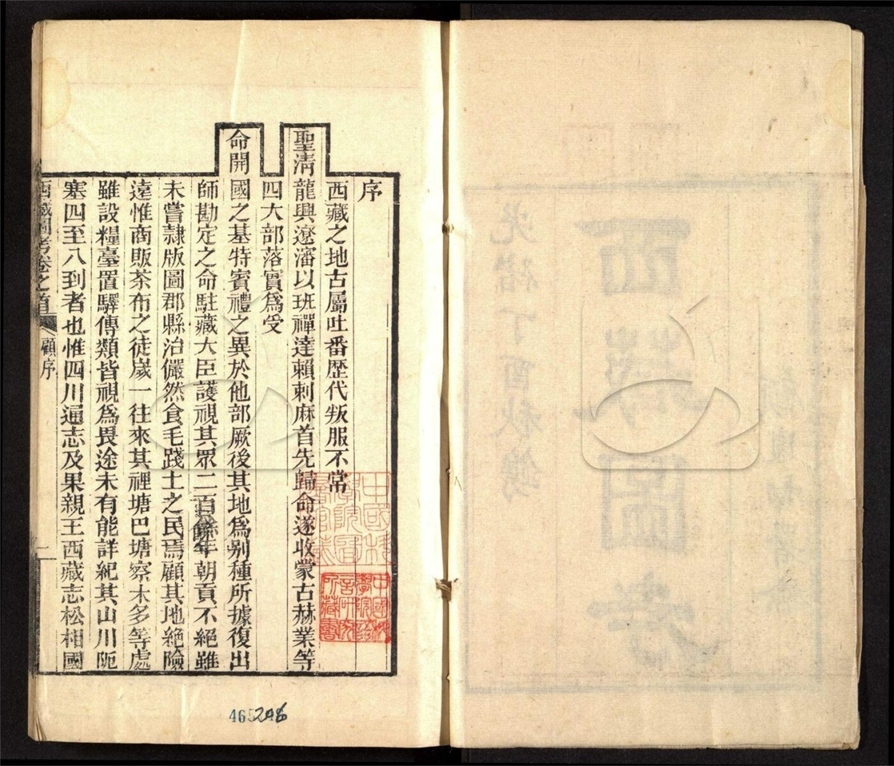 序
西藏之地古屬吐番歷代叛服不常
聖清龍興遼瀋以班禪達賴剌麻首先歸命遂收蒙古赫業等
四大部落實爲受
命開國之基特賓禮之異於他部厥後其地爲別種所據復出
師勘定之命駐藏大臣護視其眾二百餘年朝貢不絕雖
未嘗隸版圖郡縣治儼然食毛踐土之民焉顧其地絕險
遠惟商販茶布之徒歲一往來其裡塘巴塘察木多等處
雖設糧臺置驛傳類皆視爲畏途未有能詳紀其山川阨
塞四至八到者也惟四川通志及果親王西藏志松相國
西藏圖考卷之首 顧序 二
465248
光緒丁酉秋
西藏圖考